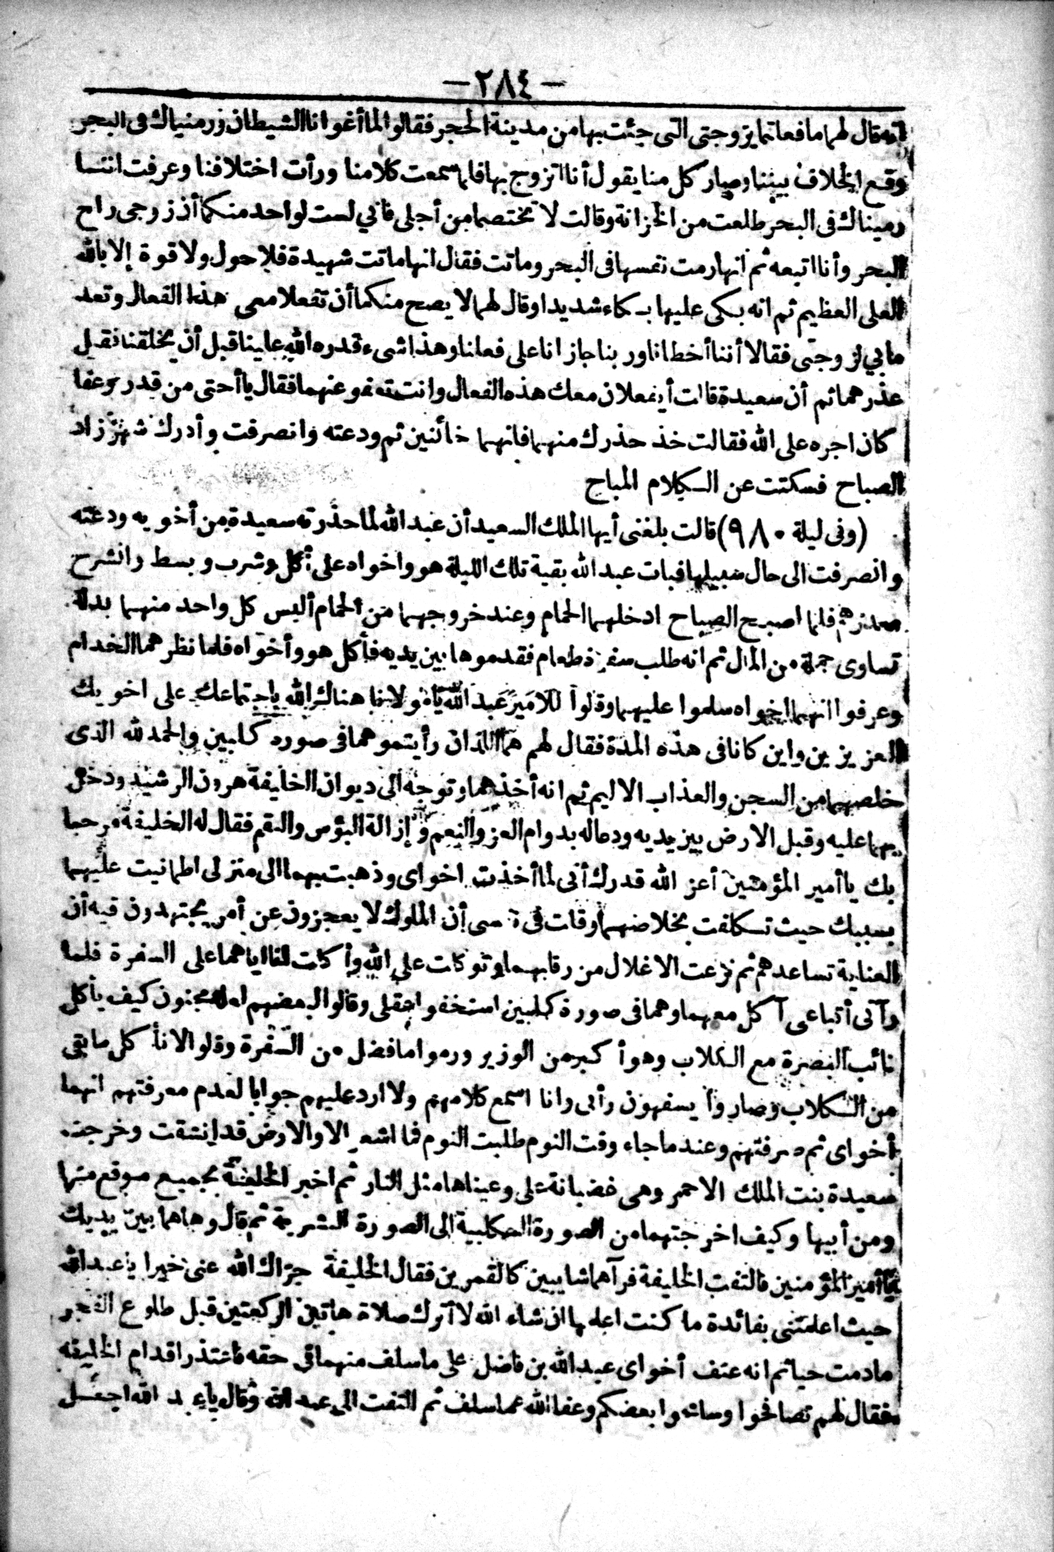 — ٢٨٤ —
انه قال لهما ما فعلتما بزوجتى التى جئت بها من مدينة الحجر فقالوا لما أغوانا الشيطان ورمنياك فى البحر
وقع الخلاف بيننا وصار كل منا يقول أنا اتزوج بها فلما سمعت كلامنا ورأت اختلافنا وعرفت اننا
رميناك فى البحر طلعت من الخزانة وقالت لا تختصما من أجلى فانى لست لواحد منكما أن زوجى راح
البحر وأنا اتبعه ثم انها رمت نفسها فى البحر وماتت فقال انها ماتت شهيدة فلا حول ولا قوة إلا بالله
العلى العظيم ثم انه بكى عليها بكاء شديدا وقال لهما لا يصح منكما أن تفعلا معى هذا الفعال وتعد
مانى زوجتى فقالا أننا أخطانا وربنا جازانا على فعلنا وهذا شىء قدره الله علينا قبل أن يخلقنا فقبل
عذرهما ثم أن سعيدة قالت أيفعلان معك هذه الفعال وانت تعفو عنهما فقال يا أختى من قدر وعفا
كان اجره على الله فقالت خذ حذرك منهما فانهما خائنين ثم ودعته وانصرفت وأدرك شهرزاد
الصباح فسكتت عن السكلام المباح
(وفى ليلة ٩٨٠) قالت بلغنى أيها الملك السعيد أن عبد الله لما حذرته سعيدة من أخويه ودعته
وانصرفت الى حال سبيلها فبات عبد الله بقية تلك الليلة هو واخواه على أكل وشرب وبسط وانشرح
صدرهم فلما اصبح الصباح ادخلهما الحمام وعند خروجهما من الحمام ألبس كل واحد منهما بدلة
تساوى جملة من المال ثم انه طلب سفرة طعام فقدموها بين يديه فأكل هو وأخواه فلما نظرهما الخدام
وعرفوا انهما اخواه سلموا عليهما وقلوا للامير عبد الله يا مولانا هناك الله باجتماعك على اخويك
العزيزين واين كانا فى هذه المدة فقال لهم هما اللذان رأيتموهما فى صورة كلبين والحمد لله الذى
خلصهما من السجن والعذاب الاليم ثم انه أخذهما وتوجه الى ديوان الخليفة هرون الرشيد ودخل
بهما عليه وقبل الارض بين يديه ودعا له بدوام العز والنعم وإزالة البؤس والنقم فقال له الخليفة مرحبا
بك يا أمير المؤمنين أعز الله قدرك أنى لما أخذت اخواى وذهبت بهما الى منزلى اطمانيت عليهما
بسببك حيث تسكلفت بخلاصهما وقلت فى نفسى إن الملوك لا يعجزون عن أمر يجتهدون فيه أن
العناية تساعدهم ثم نزعت الاغلال من رقابهما وتوكلت على الله وأكلت انا واياهما على السفرة فلما
رآنى أتباعى آكل معهما وهما فى صورة كلبين استخفوا عقلى وقالوا لبعضهم لعله مجنون كيف يأكل
نائب البصرة مع الكلاب وهو أكبر من الوزير ورموا ما فضل من السفرة وقلوا لا نأكل ما بقى
من الكلاب وصاروا يسفهون رأيى وانا اسمع كلامهم ولا ارد عليهم جوابا لعدم معرفتهم انهما
أخواى ثم صرفتهم وعند ما جاء وقت النوم طلبت النوم فما اشعر الا والارض قد انشقت وخرجت
سعيدة بنت الملك الاحمر وهى غضبانة على وعيناها مثل النار ثم اخبر الخليفة بجميع ما وقع منها
ومن أبيها وكيف اخرجتهما من الصورة الكلبية الى الصورة البشرية ثم قال وهاهما بين يديك
يا أمير المؤمنين فالتفت الخليفة فرآهما شابين كالقمرين فقال الخليفة جزاك الله عنى خيرا يا عبد الله
حيث اعلمتنى بفائدة ما كنت اعلمها ان شاء الله لا أترك صلاة هاتين الركعتين قبل طلوع الفجر
ما دمت حيا ثم انه عنف أخواى عبد الله بن فاضل على ما سلف منهما فى حقه فاعتذرا قدام الخليفه
فقال لهم تصافحوا وسامحوا بعضكم وعفا الله عما سلف ثم التفت الى عبد الله وقال يا عبد الله اجعل